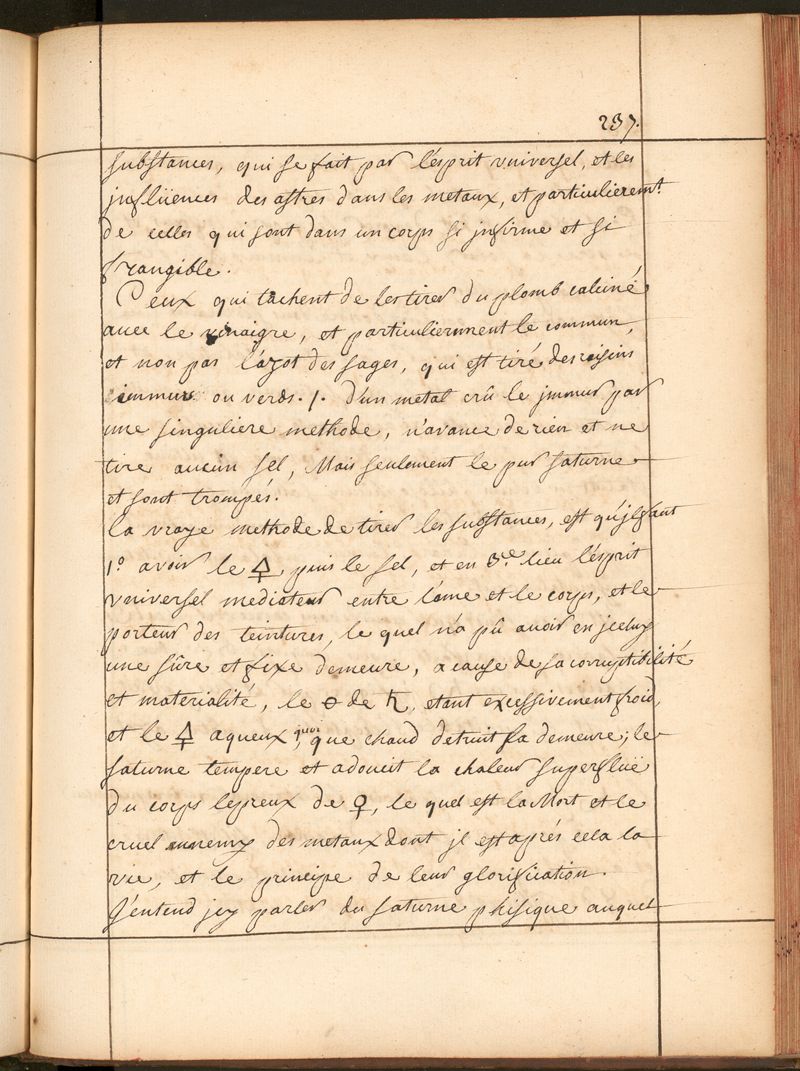 237.
substances, qui se fait par l'ésprit vniversel, et les
jnflüences des astres dans les metaux, et particulierem.t
de celles qui sont dans un corps si jnfirme et si
frangible.
Ceux qui tâchent de les tirer du plomb calciné
avec le vinaigre, et particulierement le commun,
et non pas l'azot des sages, qui est tiré des raisins
immurs ou verds ./. d'un metal crû le jmmur par
une singuliere methode, n'avance de rien et ne
tire aucun sel, Mais seulement le pur saturne
et sont trompés.
la vraye methode de tirer les substances, est qu'jl faut
1.º avoir le 🜍 puis le sel, et en 3.e lieu l'ésprit
vniversel mediateur entre l'ame et le corps, et le
porteur des teintures, le quel n'a pû avoir en jceluy
une sûre et fixe demeure, a cause de sa corruptibilité
et materialité, le 🜔 de ♄, etant excessivement froid,
et le 🜍 aqueux, quoi que chaud detruit sa demeure; le
saturne tempere et adoucit la chaleur superfluë
du corps lepreux de ♀, le quel est la Mort et le
cruel ennemy des metaux dont jl est aprés cela la
vie, et le principe de leur glorification.
J'entend jcy parler du saturne phisique auquel